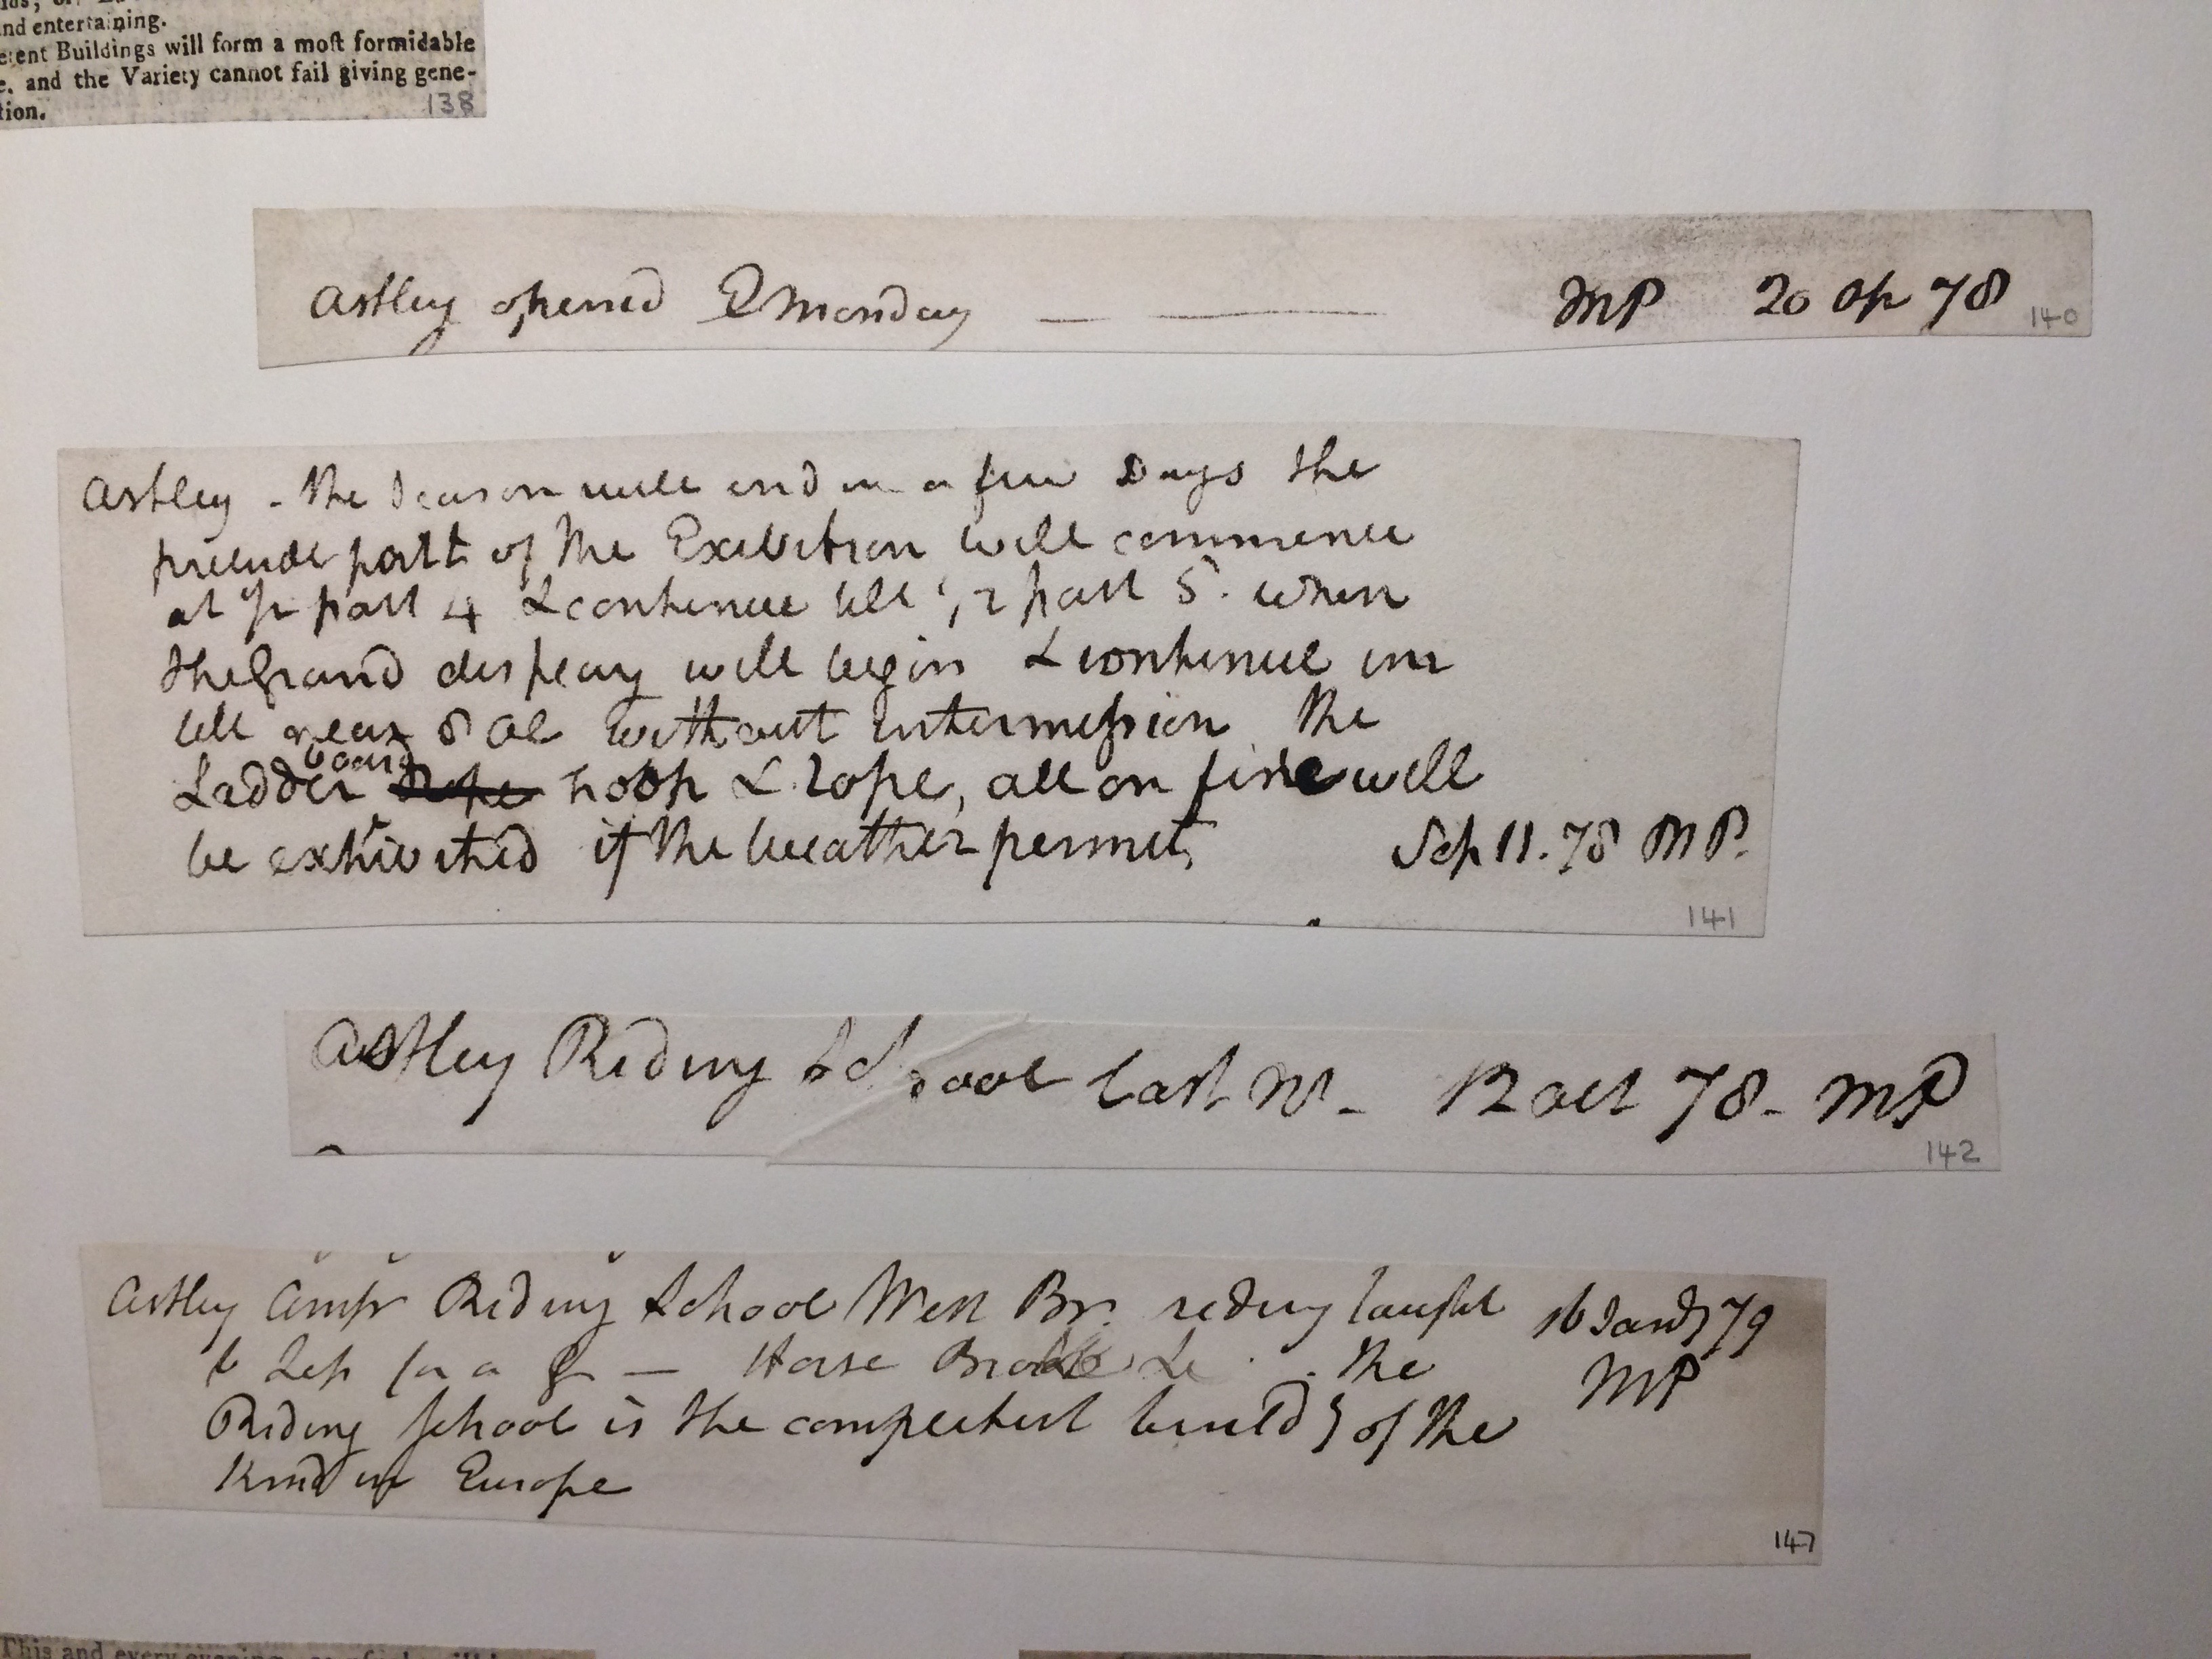 and entertaining.
Buildings will form a moſt formidable
and the Variety cannot fail giving gene-
tion.
138
Astley opened E Monday — —— MP 20 Ap 78
140
Astley - the Season will end in a few Days the
prelude part of the Exibition will commence
at ½ past 4 & continue till ½ past 5. when
the Grand display will begin & continue
till near 8 Cl without intermission the
board
Ladder hoop & rope, all on fire will
be exhibited if the weather permits Sep 11. 78 MP.
141
Astley Riding School last N. - 12 Oct 78 - MP
142
Astley Amp Riding School West Br. riding taught 16 Jany 79
6 Les for a G — Horse Broke &c . . the MP
Riding School is the compleatest buildg of the
Kind in Europe
147
This and every evening